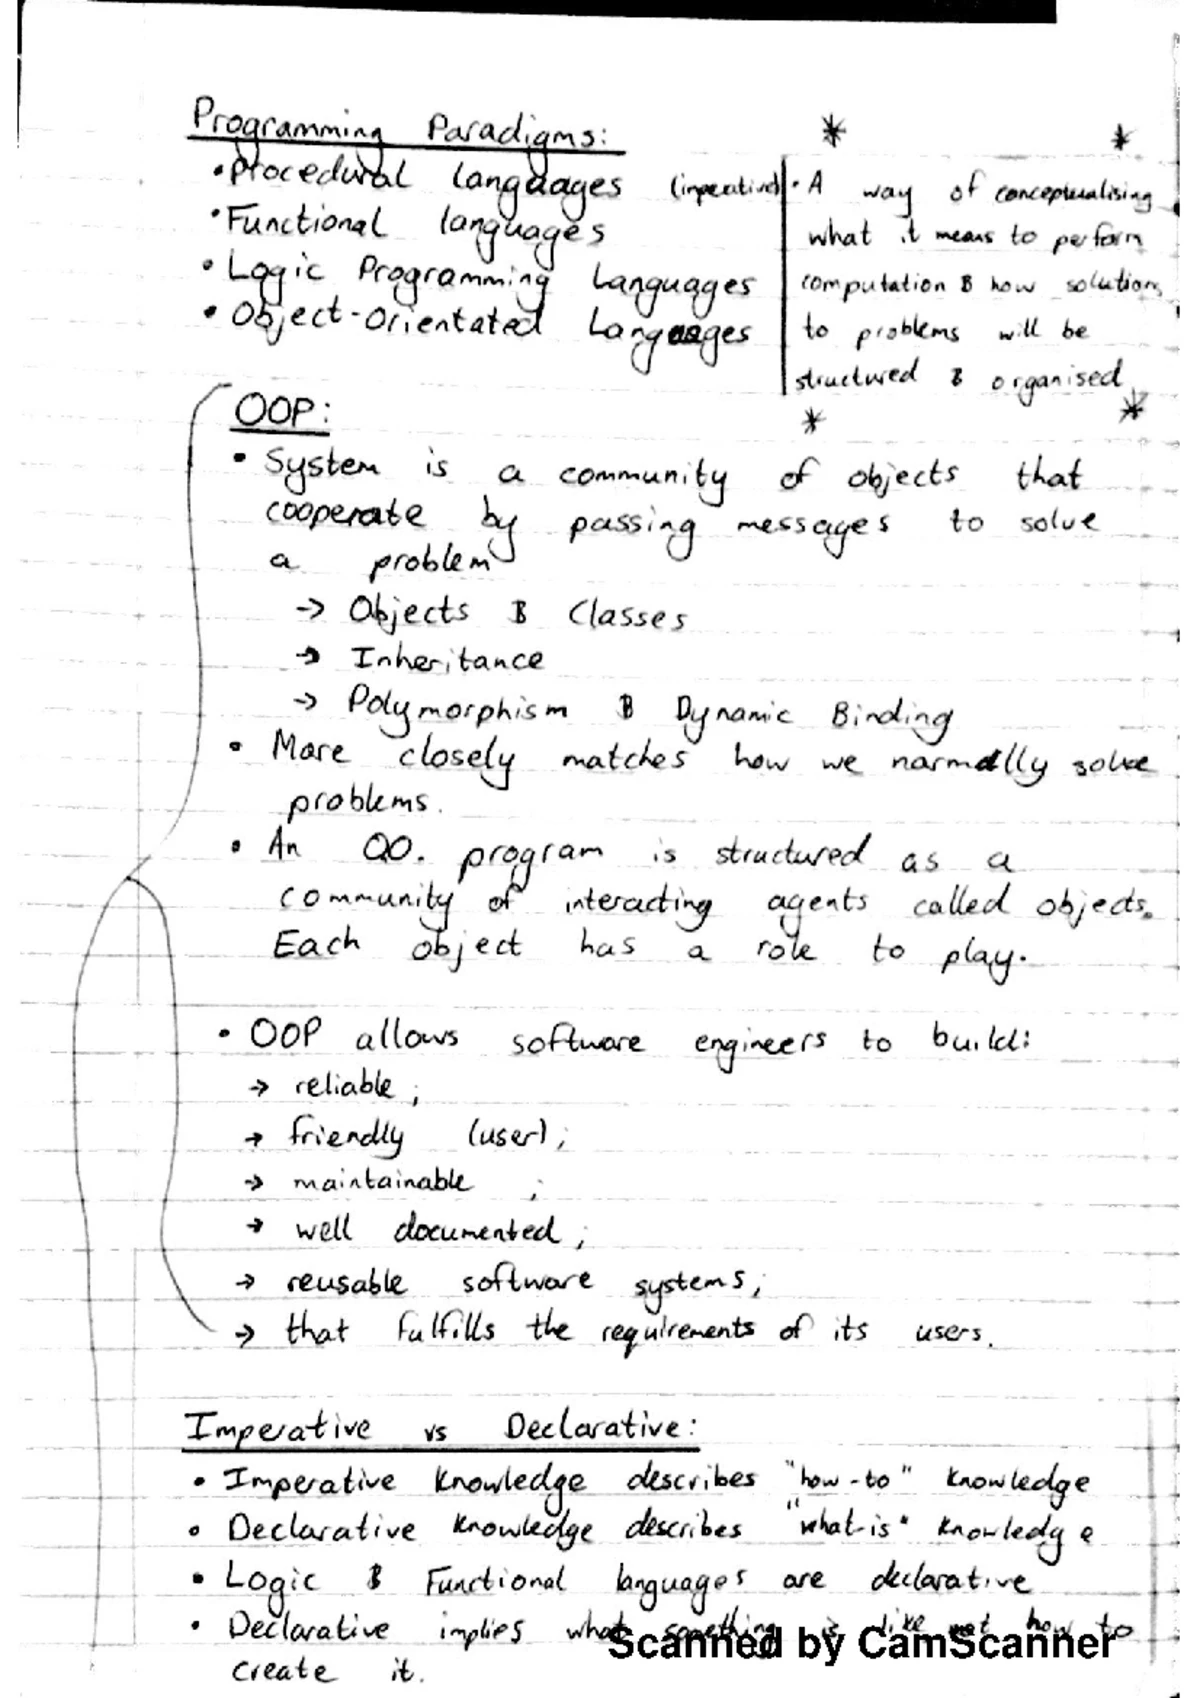 Programming Paradigms:
• Procedural languages (imperative)
• Functional languages
• Logic Programming Languages
• Object-Orientated Languages
* *
• A way of conceptualising
what it means to perform
computation & how solutions
to problems will be
structured & organised
* *
OOP:
• System is a community of objects that
cooperate by passing messages to solve
a problem
→ Objects & Classes
→ Inheritance
→ Polymorphism & Dynamic Binding
• More closely matches how we normally solve
problems.
• An O.O. program is structured as a
community of interacting agents called objects.
Each object has a role to play.
• OOP allows software engineers to build:
→ reliable;
→ friendly (user);
→ maintainable ;
→ well documented;
→ reusable software systems;
→ that fulfills the requirements of its users.
Imperative vs Declarative:
• Imperative Knowledge describes "how-to" knowledge
• Declarative knowledge describes "what-is" knowledge
• Logic & Functional languages are declarative
• Declarative implies what something is like not how to
create it.
Scanned by CamScanner